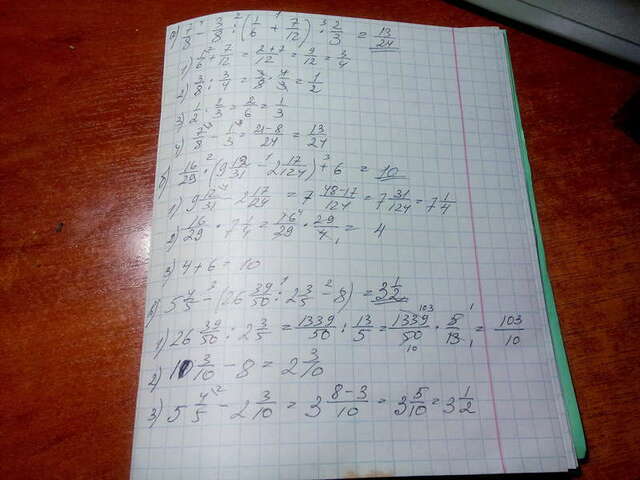 а) 7/8 - 3/8 : (1/6 + 7/12) · 2/3 = 13/24
1) 1/6 + 7/12 = (2+7)/12 = 9/12 = 3/4
2) 3/8 : 3/4 = 3/8 · 4/3 = 1/2
3) 1/2 · 2/3 = 2/6 = 1/3
4) 7/8 - 1/3 = (21-8)/24 = 13/24
б) 16/29 · (9 12/31 - 2 17/124) + 6 = 10
1) 9 12/31 - 2 17/124 = 7 (48-17)/124 = 7 31/124 = 7 1/4
2) 16/29 · 7 1/4 = 16/29 · 29/4 = 4
3) 4 + 6 = 10
в) 5 4/5 - (26 39/50 : 2 3/5 - 8) = 3 1/2
1) 26 39/50 : 2 3/5 = 1339/50 : 13/5 = 1339/50 · 5/13 = 103/10
2) 10 3/10 - 8 = 2 3/10
3) 5 4/5 - 2 3/10 = 3 (8-3)/10 = 3 5/10 = 3 1/2